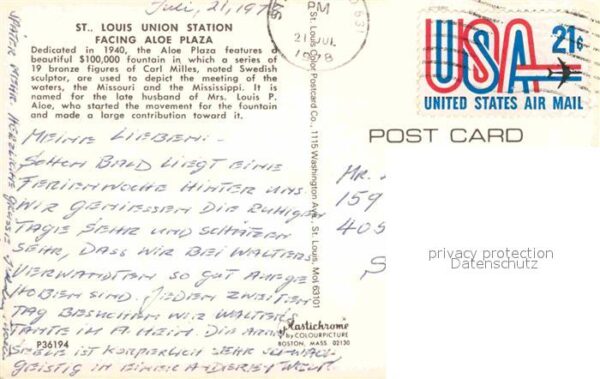 Juli, 21, 19
ST. LOUIS UNION STATION
FACING ALOE PLAZA
Dedicated in 1940, the Aloe Plaza features a
beautiful $100,000 fountain in which a series of
19 bronze figures of Carl Milles, noted Swedish
sculptor, are used to depict the meeting of the
waters, the Missouri and the Mississippi. It is
named for the late husband of Mrs. Louis P.
Aloe, who started the movement for the fountain
and made a large contribution toward it.
MEINE LIEBEN:
SCHON BALD LIEGT EINE
FERIENWOCHE HINTER UNS.
WIR GENIESSEN DIE RUHIGEN
TAGE SEHR UND SCHÄTZEN
SEHR, DASS WIR BEI WALTERS
VERWANDTEN SO GUT AUFGE
HOBEN SIND. JEDEN ZWEITEN
TAG BESUCHEN WIR WALTER'S
TANTE IM A. HEIM. DIE ARME
SEELE IST KÖRPERLICH SEHR SCHWACH
GEISTIG IN EINER ANDEREN WELT.
HERZLICHE GRÜSSE
P36194
Plastichrome
by COLOURPICTURE
BOSTON, MASS. 02130
St. Louis Color Postcard Co., 1115 Washington Ave., St. Louis, Mo. 63101
PM
21 JUL
1978
USA 21¢
UNITED STATES AIR MAIL
POST CARD
MR.
159
405
S
privacy protection
Datenschutz